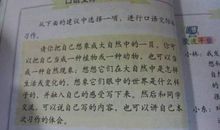 从下面的建议中选择一项，进行口语交际和
习作。
请你把自己想象成大自然中的一员，你可
以把自己当成一种植物或一种动物，也可以当
成一种自然现象；想想它们在大自然中是怎样
生活或变化的，想象它们眼中的世界是什么样
子的，并融入自己的感受写下来。然后和同学
交流，可以说自己写的内容，也可以讲自己本
次习作的体会。
小林
小东